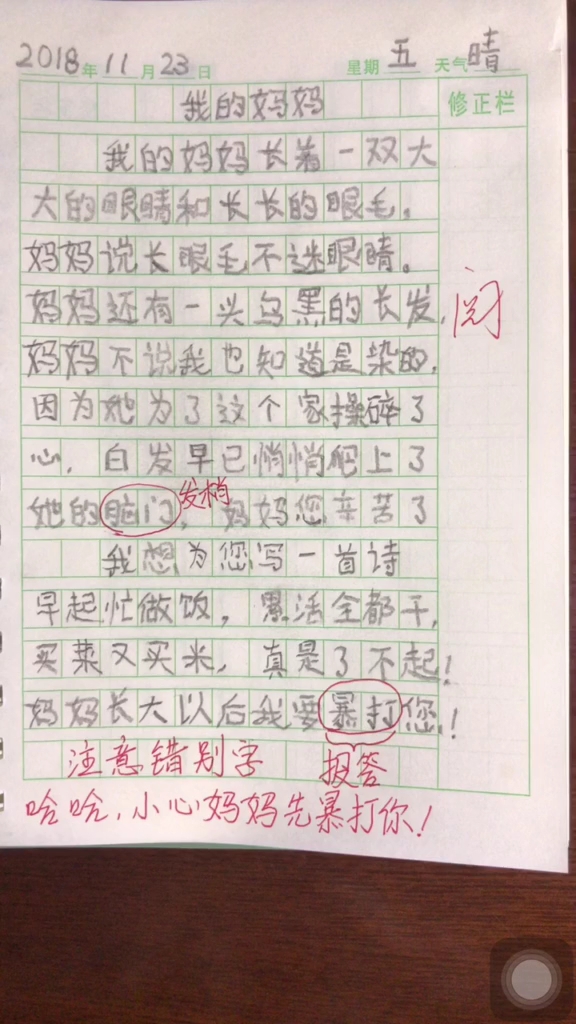 2018年11月23日 星期五 天气晴
我的妈妈 修正栏
我的妈妈长着一双大
大的眼睛和长长的眼毛。
妈妈说长眼毛不迷眼睛。
妈妈还有一头乌黑的长发,
阅
妈妈不说我也知道是染的,
因为她为了这个家操碎了
心,白发早已悄悄爬上了
她的脑门,妈妈您辛苦了
发梢
我想为您写一首诗
早起忙做饭,累活全都干,
买菜又买米,真是了不起!
妈妈长大以后我要暴打您!
注意错别字 报答
哈哈,小心妈妈先暴打你!